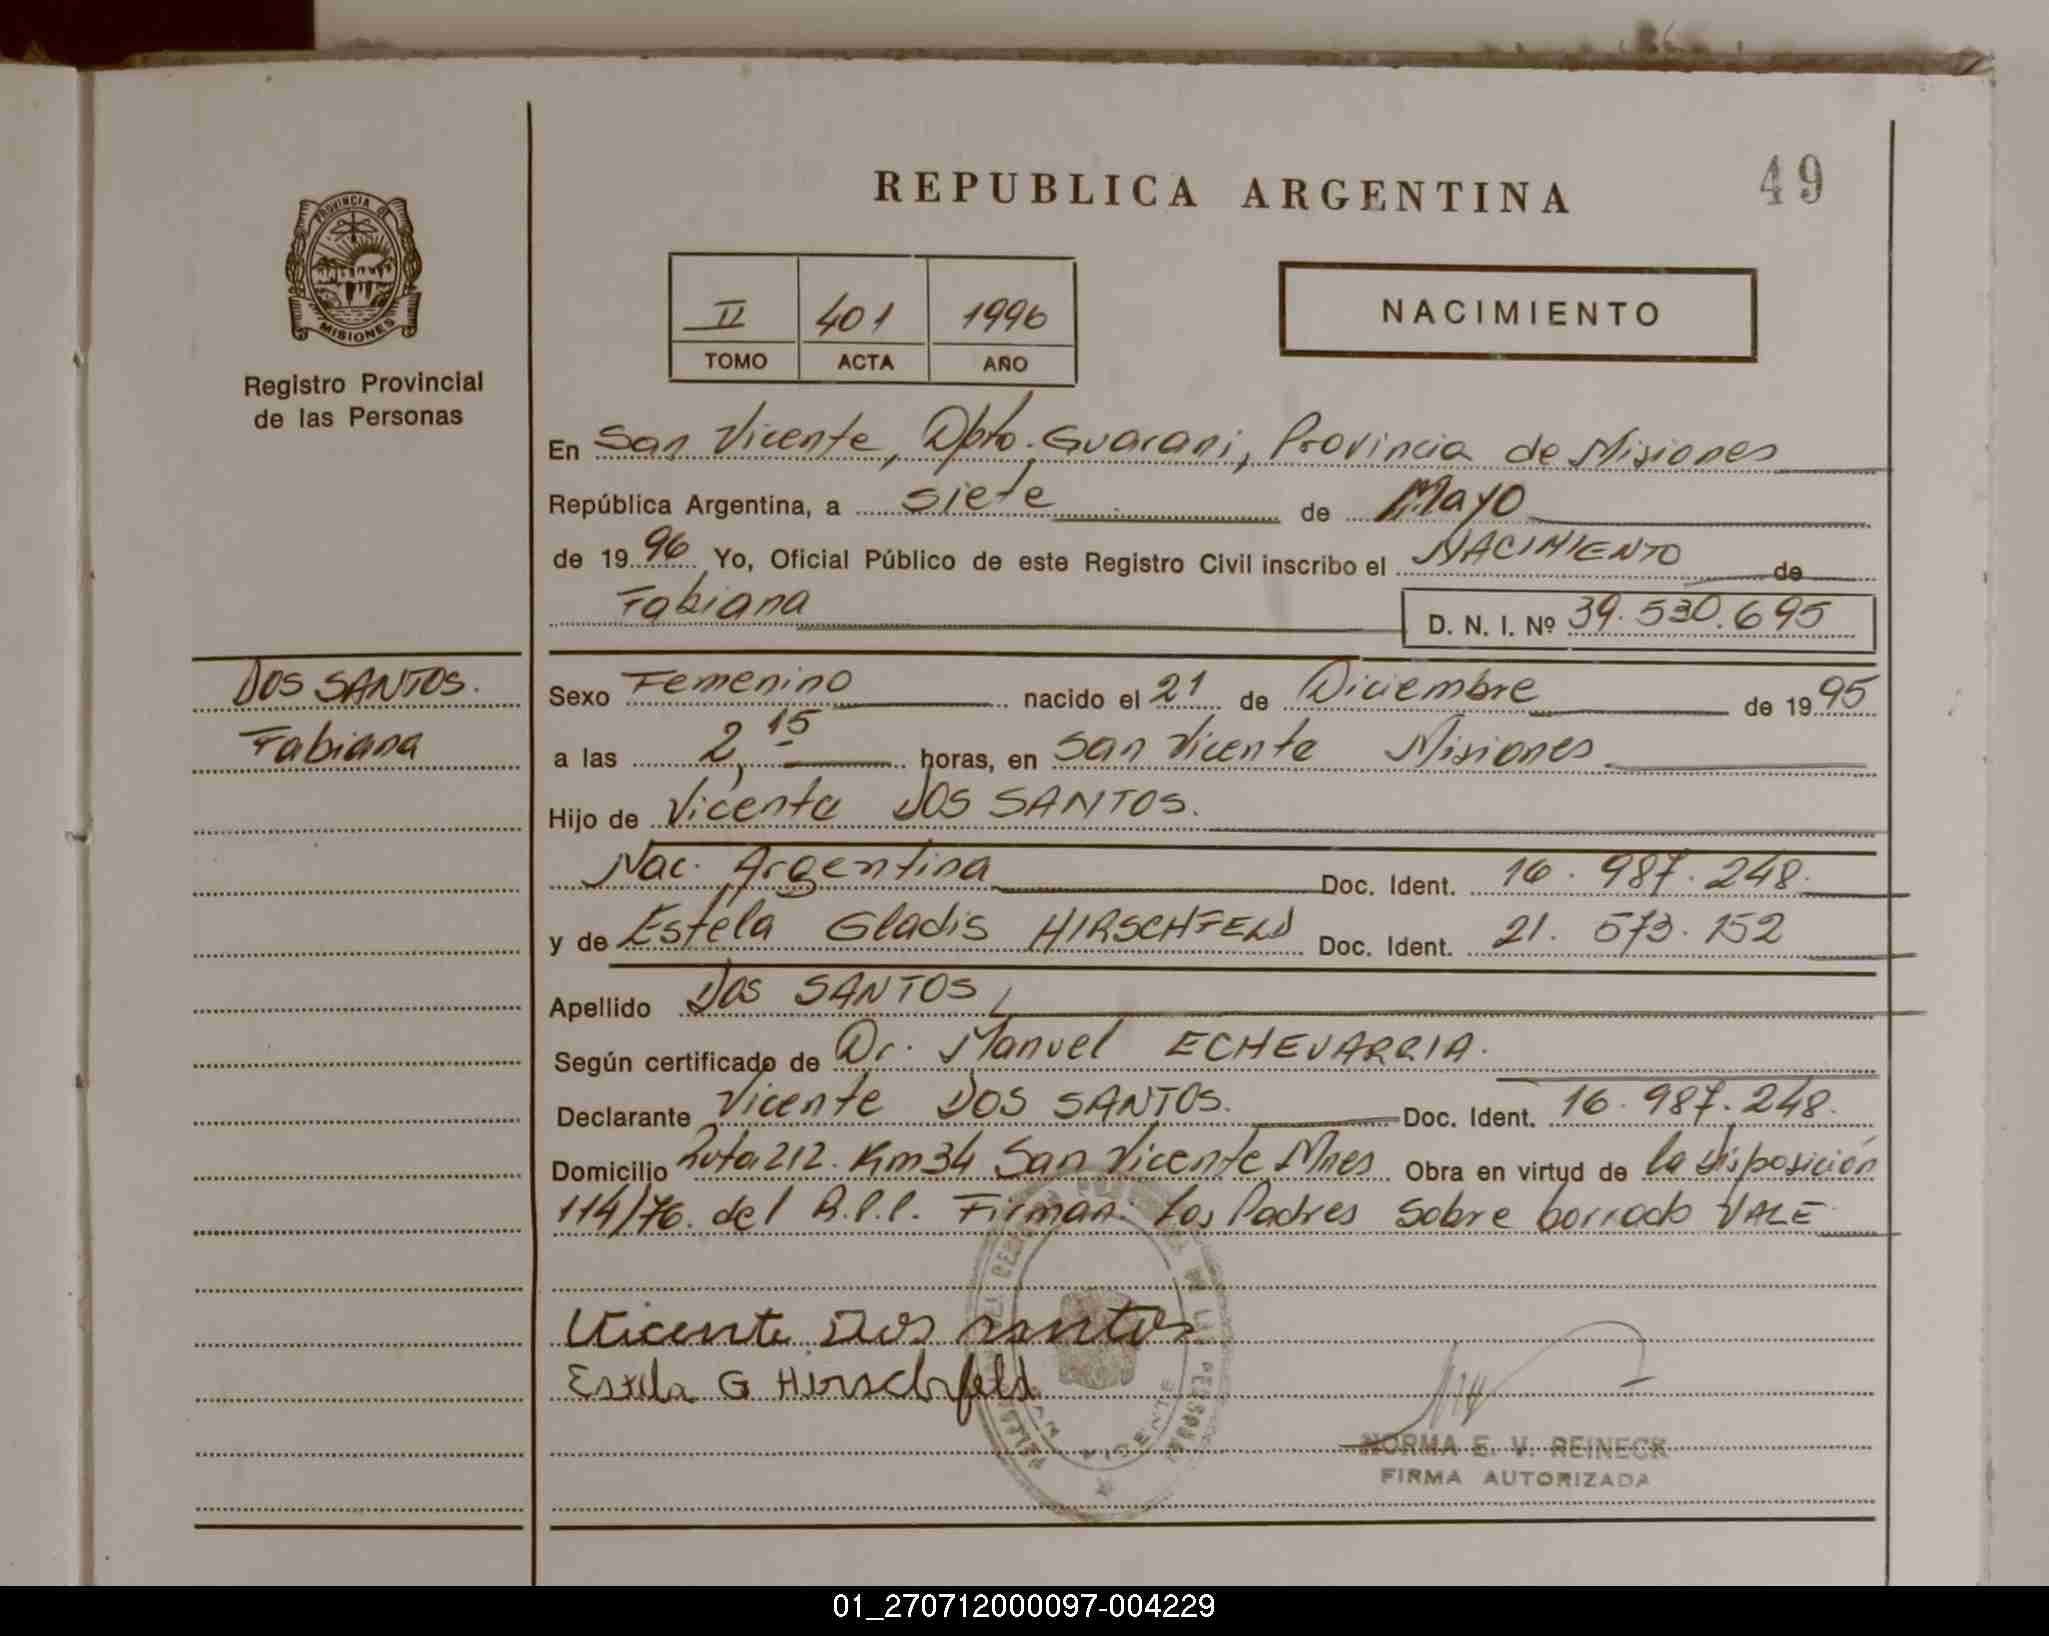 REPUBLICA ARGENTINA
49
PROVINCIA DE
MISIONES
Registro Provincial
de las Personas
II 401 1996
TOMO ACTA AÑO
NACIMIENTO
En San Vicente, Dpto. Guarani, Provincia de Misiones
República Argentina, a siete de Mayo
de 1996 Yo, Oficial Público de este Registro Civil inscribo el NACIMIENTO de
Fabiana D. N. I. Nº 39.530.695
DOS SANTOS.
Fabiana
Sexo Femenino nacido el 21 de Diciembre de 1995
a las 2,15 horas, en San Vicente Misiones
Hijo de Vicente DOS SANTOS.
Nac. Argentina Doc. Ident. 16.987.248.
y de Estela Gladis HIRSCHFELD Doc. Ident. 21.573.152
Apellido DOS SANTOS
Según certificado de Dr. Manuel ECHEVARRIA.
Declarante Vicente DOS SANTOS. Doc. Ident. 16.987.248.
Domicilio Ruta 212. Km 34 San Vicente Mnes Obra en virtud de la Disposición
114/76. del R.P.P. Firman: los Padres sobre borrado VALE
Vicente Dos santos
Estela G Hirschfeld
SAN VICENTE
NORMA E. V. REINECK
FIRMA AUTORIZADA
01_270712000097-004229